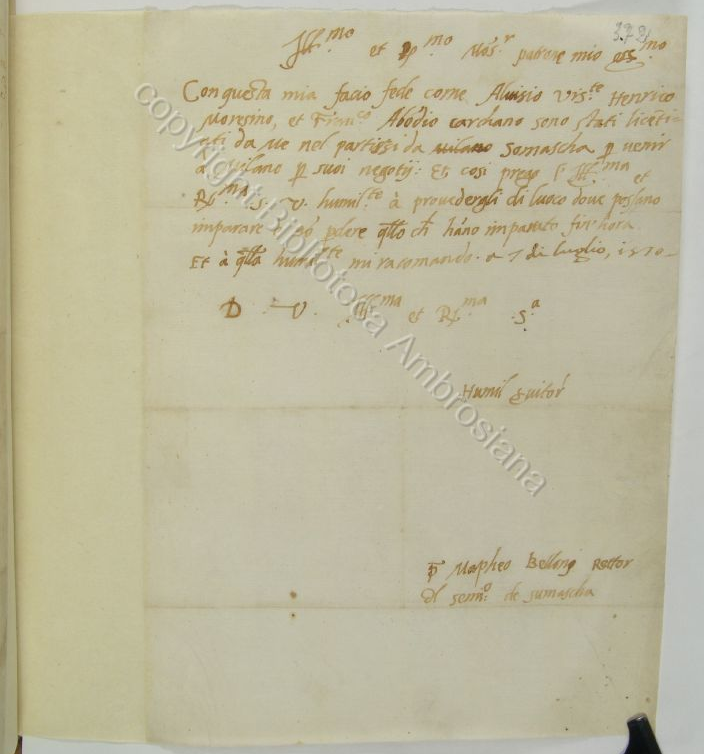 378
Ill.mo et R.mo Mõs.r patrone mio oss.mo
Con questa mia facio fede come Aluisio Vis.te Henrico
Moresino, et Franc.o Abodio carchano sono stati licẽti-
ati da me nel partirsi da milano Somascha p venir
a Milano p suoi negotij: Et cosi prego V. Ill.ma et
R.ma S. V. humil.te à prouedergli di luoco doue possano
imparare et nõ pdere qllo ch hãno imparato fin'hora
Et à qlla humil.te mi racomando. a 7 di luglio, 1570-
D. V. Ill.ma et R.ma S.a
Humil Seruitor
P. Mapheo Bellone Rettor
dl semi.o de sumascha
copyright Biblioteca Ambrosiana